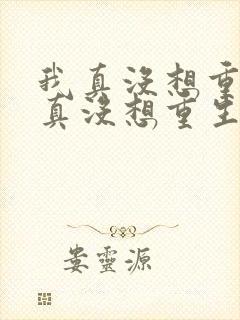 我真没想重
真没想重生
娄灵源